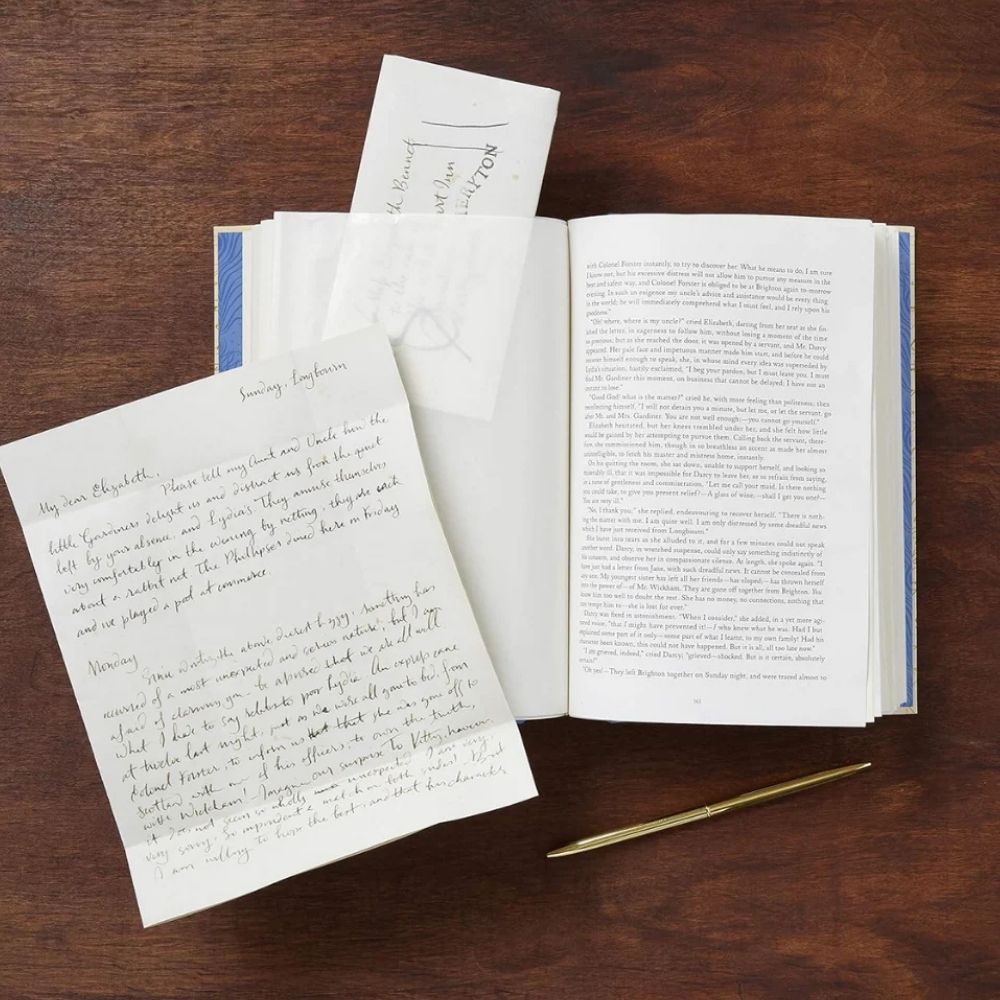 th Bennet
art Inn
MERYTON
Sunday, Longbourn
My dear Elizabeth,
Please tell my Aunt and Uncle how the
little Gardiners delight us and distract us from the quiet
left by your absence, and Lydia's. They amuse themselves
very comfortably in the evening by netting, they are each
about a rabbit net. The Phillipses dined here on Friday
and we played a pool at commerce.
Monday
Since writing the above, dearest Lizzy, something has
occurred of a most unexpected and serious nature; but I am
afraid of alarming you – be assured that we are all well.
What I have to say relates to poor Lydia. An express came
at twelve last night, just as we were all gone to bed, from
Colonel Forster, to inform us that she was gone off to
Scotland with one of his officers; to own the truth,
with Wickham! Imagine our surprise. To Kitty, however,
it does not seem so wholly unexpected. I am very,
very sorry. So imprudent a match on both sides! But
I am willing to hope the best, and that his character
with Colonel Forster instantly, to try to discover her. What he means to do, I am sure
I know not; but his excessive distress will not allow him to pursue any measure in the
best and safest way, and Colonel Forster is obliged to be at Brighton again to-morrow
evening. In such an exigence my uncle's advice and assistance would be every thing
in the world; he will immediately comprehend what I must feel, and I rely upon his
goodness."
"Oh! where, where is my uncle?" cried Elizabeth, darting from her seat as she fin-
ished the letter, in eagerness to follow him, without losing a moment of the time
so precious; but as she reached the door, it was opened by a servant, and Mr. Darcy
appeared. Her pale face and impetuous manner made him start, and before he could
recover himself enough to speak, she, in whose mind every idea was superseded by
Lydia's situation, hastily exclaimed, "I beg your pardon, but I must leave you. I must
find Mr. Gardiner this moment, on business that cannot be delayed; I have not an
instant to lose."
"Good God! what is the matter?" cried he, with more feeling than politeness; then
recollecting himself, "I will not detain you a minute, but let me, or let the servant, go
after Mr. and Mrs. Gardiner. You are not well enough;—you cannot go yourself."
Elizabeth hesitated, but her knees trembled under her, and she felt how little
would be gained by her attempting to pursue them. Calling back the servant, there-
fore, she commissioned him, though in so breathless an accent as made her almost
unintelligible, to fetch his master and mistress home, instantly.
On his quitting the room, she sat down, unable to support herself, and looking so
miserably ill, that it was impossible for Darcy to leave her, or to refrain from saying,
in a tone of gentleness and commiseration, "Let me call your maid. Is there nothing
you could take, to give you present relief?—A glass of wine;—shall I get you one?—
You are very ill."
"No, I thank you;" she replied, endeavouring to recover herself. "There is noth-
ing the matter with me. I am quite well. I am only distressed by some dreadful news
which I have just received from Longbourn."
She burst into tears as she alluded to it, and for a few minutes could not speak
another word. Darcy, in wretched suspense, could only say something indistinctly of
his concern, and observe her in compassionate silence. At length, she spoke again. "I
have just had a letter from Jane, with such dreadful news. It cannot be concealed from
any one. My youngest sister has left all her friends—has eloped;—has thrown herself
into the power of—of Mr. Wickham. They are gone off together from Brighton. You
know him too well to doubt the rest. She has no money, no connections, nothing that
can tempt him to—she is lost for ever."
Darcy was fixed in astonishment. "When I consider," she added, in a yet more agi-
tated voice, "that I might have prevented it!—I who knew what he was. Had I but
explained some part of it only—some part of what I learnt, to my own family! Had his
character been known, this could not have happened. But it is all, all too late now."
"I am grieved, indeed," cried Darcy; "grieved—shocked. But is it certain, absolutely
certain?"
"Oh yes!—They left Brighton together on Sunday night, and were traced almost to